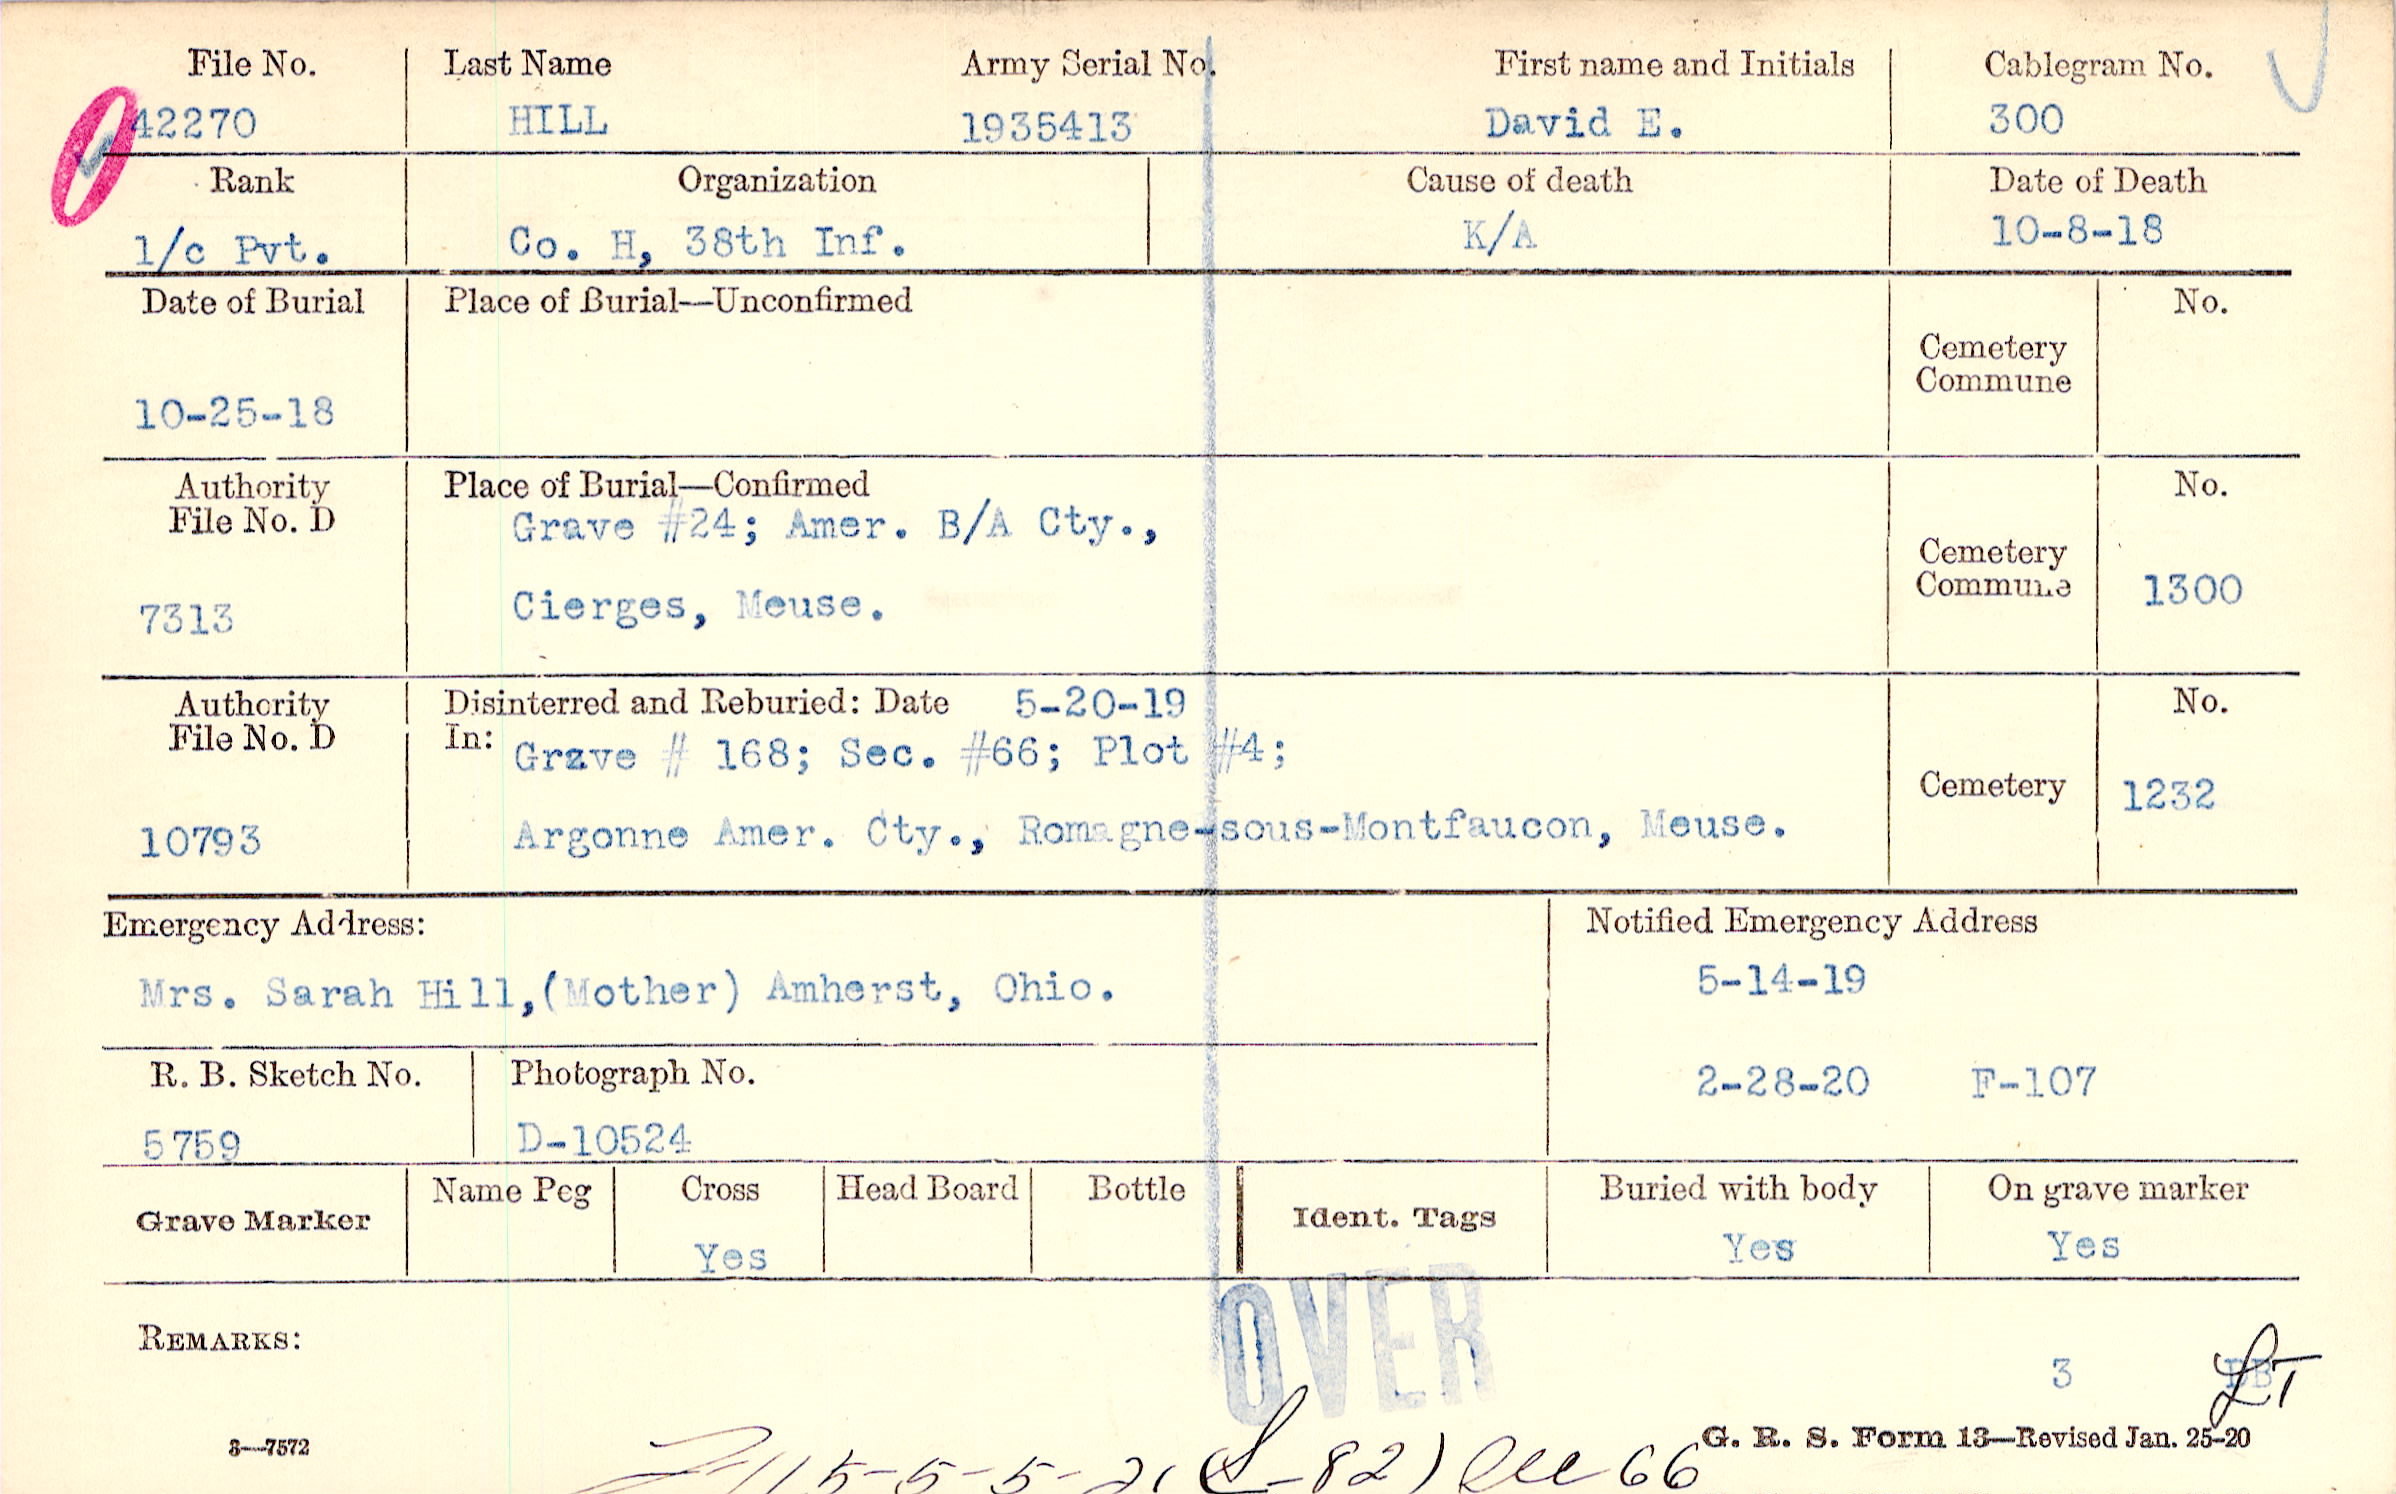 File No. Last Name Army Serial No. First name and Initials Cablegram No.
42270 HILL 1935413 David E. 300
Rank Organization Cause of death Date of Death
1/c Pvt. Co. H, 38th Inf. K/A 10-8-18
Date of Burial Place of Burial—Unconfirmed No.
Cemetery
Commune
10-25-18
Authority Place of Burial—Confirmed No.
File No. D Grave #24; Amer. B/A Cty.,
Cemetery
Commune 1300
7313 Cierges, Meuse.
Authority Disinterred and Reburied: Date 5-20-19 No.
File No. D In: Grave # 168; Sec. #66; Plot #4;
Cemetery 1232
10793 Argonne Amer. Cty., Romagne-sous-Montfaucon, Meuse.
Emergency Address: Notified Emergency Address
Mrs. Sarah Hill,(Mother) Amherst, Ohio. 5-14-19
R. B. Sketch No. Photograph No. 2-28-20 F-107
5759 D-10524
Grave Marker Name Peg Cross Head Board Bottle Ident. Tags Buried with body On grave marker
Yes Yes Yes
OVER
REMARKS:
3 LT
3—7572 G. R. S. Form 13—Revised Jan. 25-20
82) 66